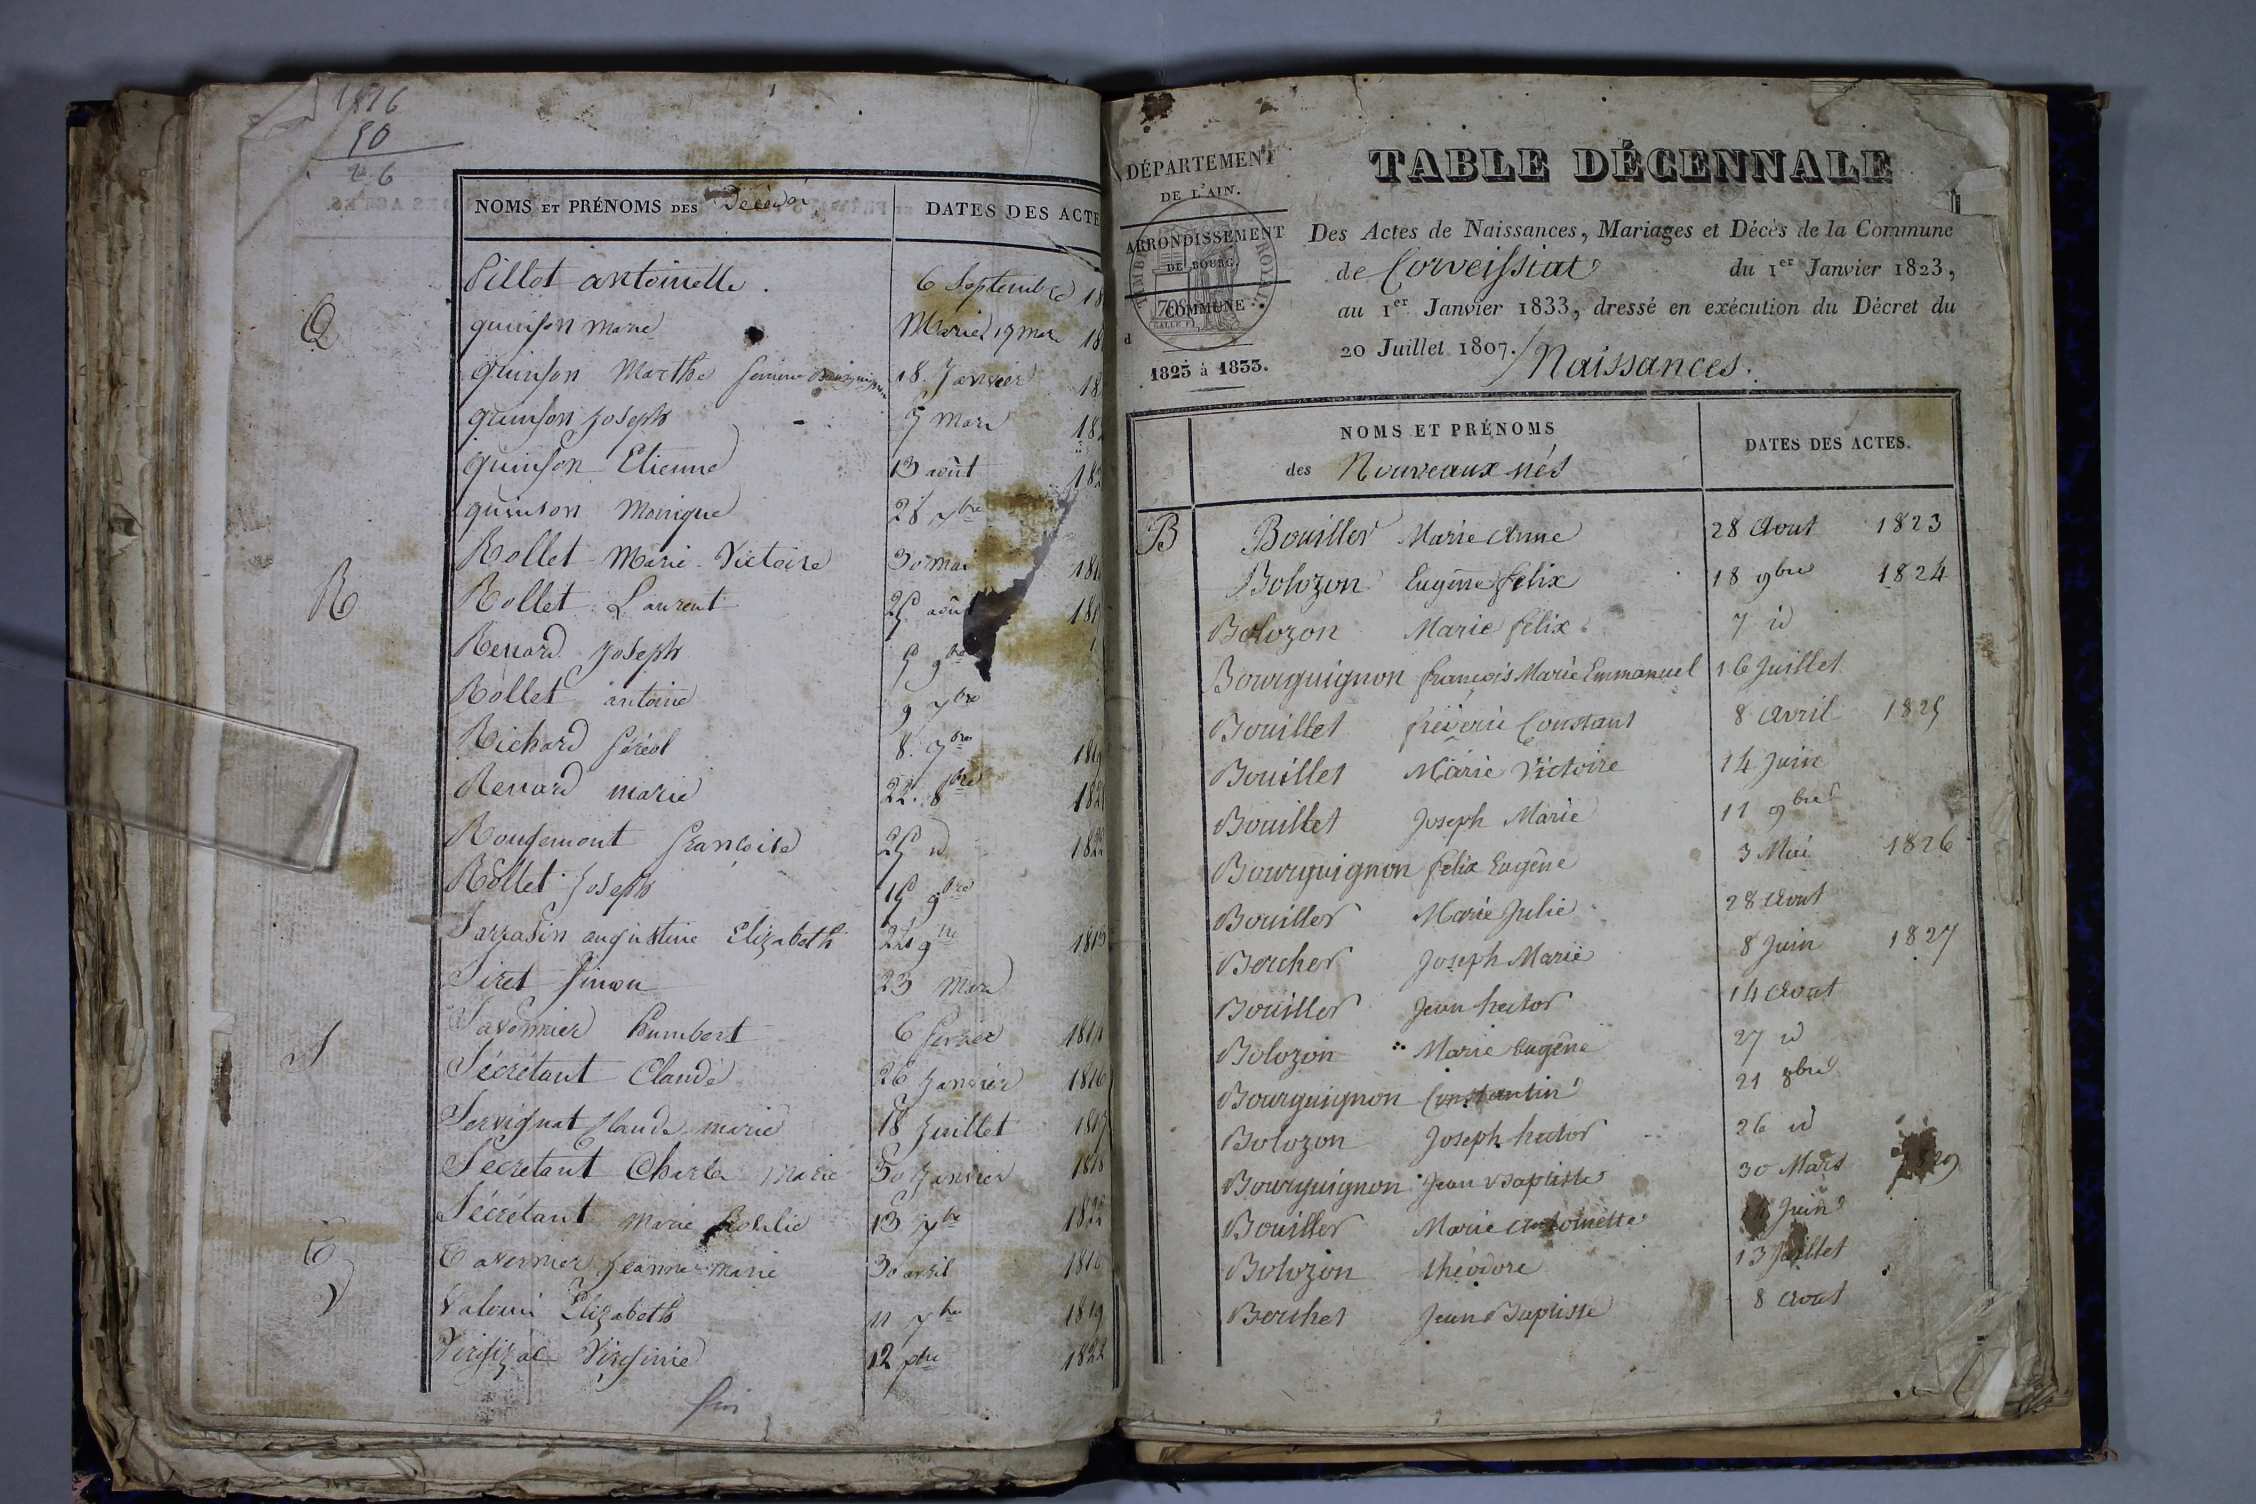 1816
10
26
NOMS ET PRÉNOMS DES Décédés
DATES DES ACTE
Pillot antoinette. 6 Septembre 18
Q
quinson marie 19 mars 18
quinson Marthe femme Bourguignon 18 Janvier 18
quinson Joseph 7 mars 182
quinson Etienne 13 août 182
quinson Monique 28 7bre
R
Rollet Marie Victoire 30 mai 181
Rollet Laurent 25 août 181
Renard Joseph 5 9bre
Rollet antoine 9 7bre
Richard féréol 8 7bre 181
Renard marie 22 8bre 182
Rougemont francoise 25 id 1822
Rollet Joseph 15 9bre
Sarrasin augustine Elizabeth 22 9bre 181
Siret Simon 23 Mars
S
Savonnier humbert 6 fevrier 181
Sécrétant Claude 26 Janvier 1816
Servignat Claude marie 18 Juillet 1817
Sécrétant Charles Marie 30 Janvier 1818
Sécrétant Marie Rosalie 13 7bre 1822
T
Tavernier Jeanne Marie 30 avril 181
V
Elizabeth 11 7bre 1819
Virginie 12 1822
fin
DÉPARTEMENT
DE L'AIN.
ARRONDISSEMENT
DE BOURG.
COMMUNE
d
1823 à 1833.
TIMBRE ROYAL
70c
TABLE DÉCENNALE
Des Actes de Naissances, Mariages et Décès de la Commune
de Corveissiat du 1er Janvier 1823,
au 1er Janvier 1833, dressé en exécution du Décret du
20 Juillet 1807. Naissances.
NOMS ET PRÉNOMS
des Nouveaux nés
DATES DES ACTES.
B Bouiller Marie Anne 28 Aout 1823
Bolozon Eugêne felix 18 9bre 1824
Bolozon Marie felix 7 id
Bourguignon francois Marie Emmanuel 16 Juillet
Bouillet fréderic Constant 8 Avril 1825
Bouillet Marie Victoire 14 Juin
Bouillet Joseph Marie 11 9bre
Bourguignon felix Eugêne 3 Mai 1826
Bouiller Marie Julie 28 Aout
Bercher Joseph Marie 8 Juin 1827
Bouiller Jean hector 14 Aout
Bolozon Marie Eugêne 27 id
Bourguignon Constantin 21 8bre
Bolozon Joseph hector 26 id
Bourguignon Jean Baptiste 30 Mars 1829
Bouiller Marie Antoinette Juin
Bolozon théodore 13 Juillet
Bercher Jean Baptiste 8 Aout